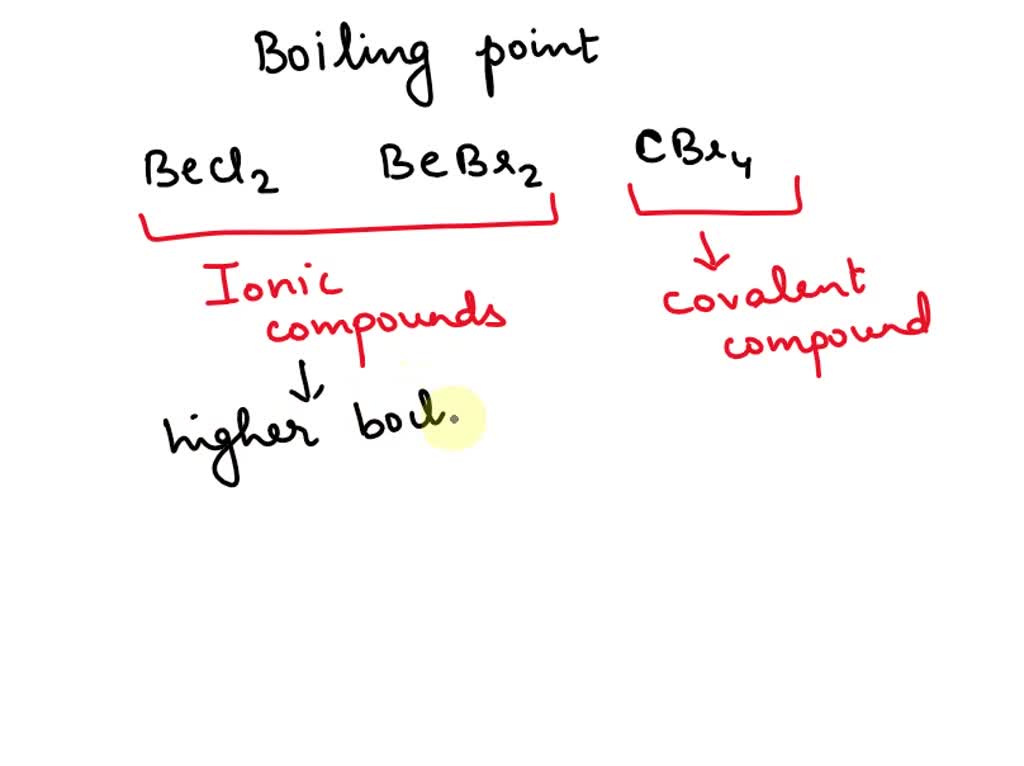 Boiling point
BeCl2 BeBr2 CBr4
Ionic compounds
covalent compound
higher boil